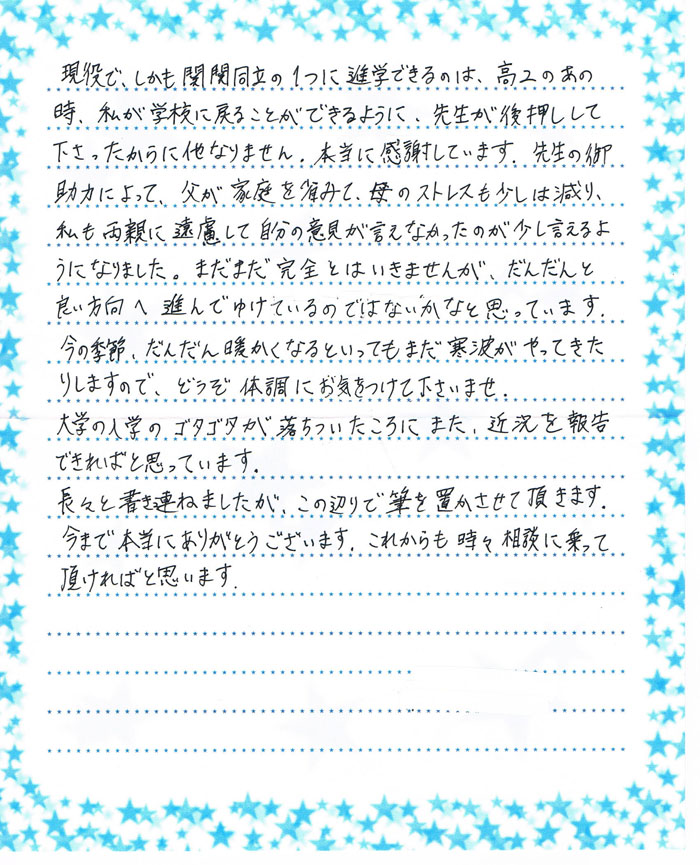 現役で、しかも関関同立の1つに進学できるのは、高2のあの
時、私が学校に戻ることができるように、先生が後押しして
下さったからに他なりません。本当に感謝しています。先生の御
助力によって、父が家庭を省みて、母のストレスも少しは減り、
私も両親に遠慮して自分の意見が言えなかったのが少し言えるよ
うになりました。まだまだ完全とはいきませんが、だんだんと
良い方向へ進んでゆけているのではないかなと思っています。
今の季節、だんだん暖かくなるといってもまだ寒波がやってきた
りしますので、どうぞ体調にお気をつけて下さいませ。
大学の入学のゴタゴタが落ちついたころにまた、近況を報告
できればと思っています。
長々と書き連ねましたが、この辺りで筆を置かさせて頂きます。
今まで本当にありがとうございます。これからも時々相談に乗って
頂ければと思います。